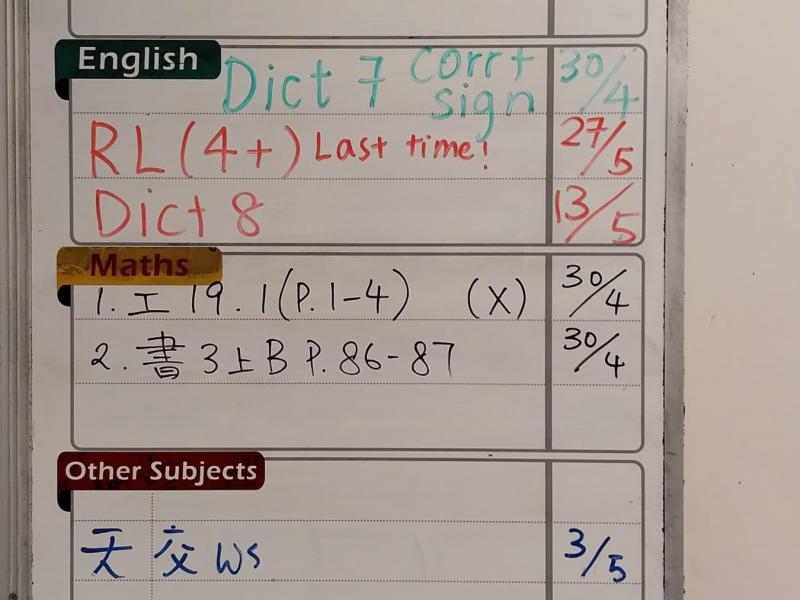 English
Dict 7 corr+ sign 30/4
RL (4+) Last time! 27/5
Dict 8 13/5
Maths
1. 工 19.1 (P.1-4) (X) 30/4
2. 書 3上B P.86-87 30/4
Other Subjects
天 交 WS 3/5